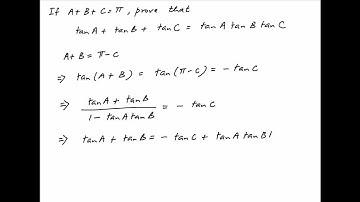 If A+B+C=π, prove that
tanA + tanB + tanC = tanA tanB tanC
A+B = π-C
⇒ tan(A+B) = tan(π-C) = -tanC
⇒ (tanA + tanB)/(1 - tanA tanB) = - tanC
⇒ tanA + tanB = - tanC + tanA tanB